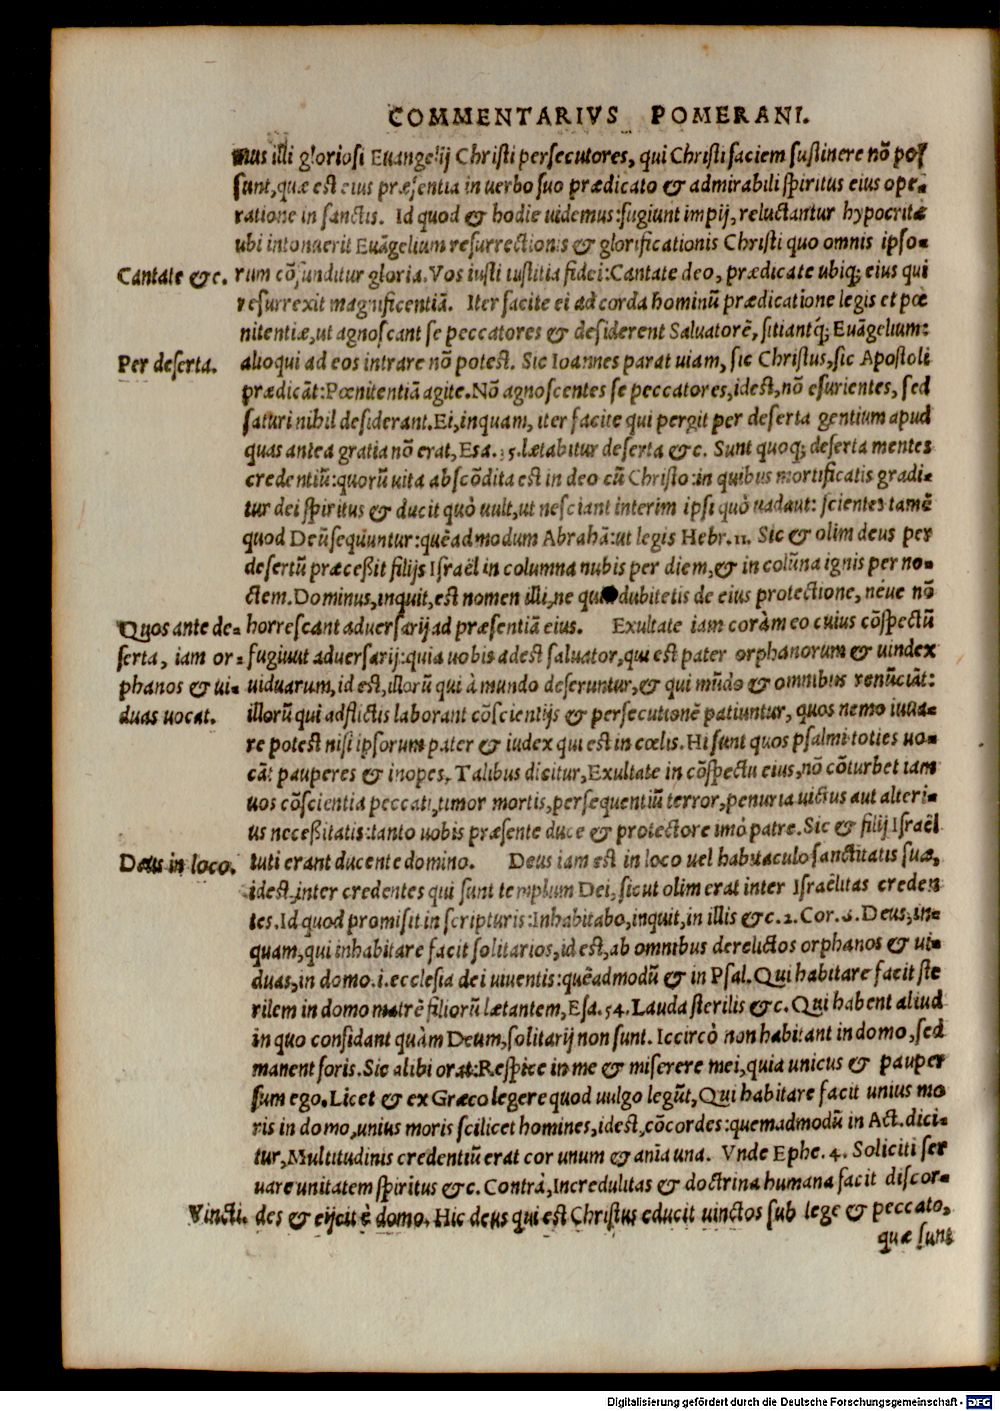 COMMENTARIVS POMERANI.
mus illi gloriosi Euangelij Christi persecutores, qui Christi faciem sustinere nõ pos
sunt, quæ est eius præsentia in uerbo suo prædicato & admirabili spiritus eius ope-
ratione in sanctis. Id quod & hodie uidemus: fugiunt impij, reluctantur hypocritæ
ubi intonuerit Euãgelium resurrectionis & glorificationis Christi quo omnis ipso-
Cantate &c. rum cõfunditur gloria. Vos iusti iustitia fidei: Cantate deo, prædicate ubiq; eius qui
resurrexit magnificentiã. Iter facite ei ad corda hominũ prædicatione legis et pœ
nitentiæ, ut agnoscant se peccatores & desiderent Saluatorẽ, sitiantq́; Euãgelium:
Per deserta. alioqui ad eos intrare nõ potest. Sic Ioannes parat uiam, sic Christus, sic Apostoli
prædicãt: Pœnitentiã agite. Nõ agnoscentes se peccatores, idest, nõ esurientes, sed
saturi nihil desiderant. Ei, inquam, iter facite qui pergit per deserta gentium apud
quas antea gratia nõ erat, Esa. 35. lætabitur deserta &c. Sunt quoq; deserta mentes
credentiũ: quorũ uita abscõdita est in deo cũ Christo: in quibus mortificatis gradi-
tur dei spiritus & ducit quò uult, ut nesciant interim ipsi quò uadant: scientes tamẽ
quod Deũ sequuntur: quẽadmodum Abrahã: ut legis Hebr. 11. Sic & olim deus per
desertũ præceßit filijs Israël in columna nubis per diem, & in colũna ignis per no-
ctem. Dominus, inquit, est nomen illi, ne quid dubitetis de eius protectione, neue nõ
Quos ante de- horrescant aduersarij ad præsentiã eius. Exultate iam coràm eo cuius cõspectũ
serta, iam or- fugiunt aduersarij: quia uobis adest saluator, qui est pater orphanorum & uindex
phanos & ui- uiduarum, id est, illorũ qui à mundo deseruntur, & qui mũdo & omnibus renũciãt:
duas uocat. illorũ qui adflictis laborant cõscientijs & persecutionẽ patiuntur, quos nemo iuua-
re potest nisi ipsorum pater & iudex qui est in cœlis. Hi sunt quos psalmi toties uo-
cãt pauperes & inopes. Talibus dicitur, Exultate in cõspectu eius, nõ cõturbet iam
uos cõscientia peccati, timor mortis, persequentiũ terror, penuria uictus aut alteri-
us neceßitatis: tanto uobis præsente duce & protectore imò patre. Sic & filij Israël
Deus in loco. tuti erant ducente domino. Deus iam est in loco uel habitaculo sanctitatis suæ,
idest, inter credentes qui sunt templum Dei, sicut olim erat inter Israëlitas creden
tes. Id quod promisit in scripturis: Inhabitabo, inquit, in illis &c. 2. Cor. 6. Deus, in-
quam, qui inhabitare facit solitarios, id est, ab omnibus derelictos orphanos & ui-
duas, in domo. i. ecclesia dei uiuentis: quẽadmodũ & in Psal. Qui habitare facit ste
rilem in domo matrẽ filiorũ lætantem, Esa. 54. Lauda sterilis &c. Qui habent aliud
in quo confidant quàm Deum, solitarij non sunt. Iccircò non habitant in domo, sed
manent foris. Sic alibi orat: Respice in me & miserere mei, quia unicus & pauper
sum ego. Licet & ex Græco legere quod uulgo legũt, Qui habitare facit unius mo
ris in domo, unius moris scilicet homines, idest, cõcordes: quemadmodũ in Act. dici-
tur, Multitudinis credentiũ erat cor unum & aĩa una. Vnde Ephe. 4. Soliciti ser
uare unitatem spiritus &c. Contrà, Incredulitas & doctrina humana facit discor-
Vincti. des & eijcit è domo. Hic deus qui est Christus educit uinctos sub lege & peccato,
quæ sunt
Digitalisierung gefördert durch die Deutsche Forschungsgemeinschaft - DFG